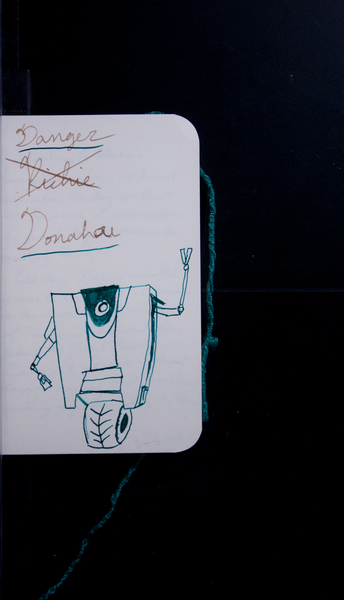 Danger
Richie
Donahue